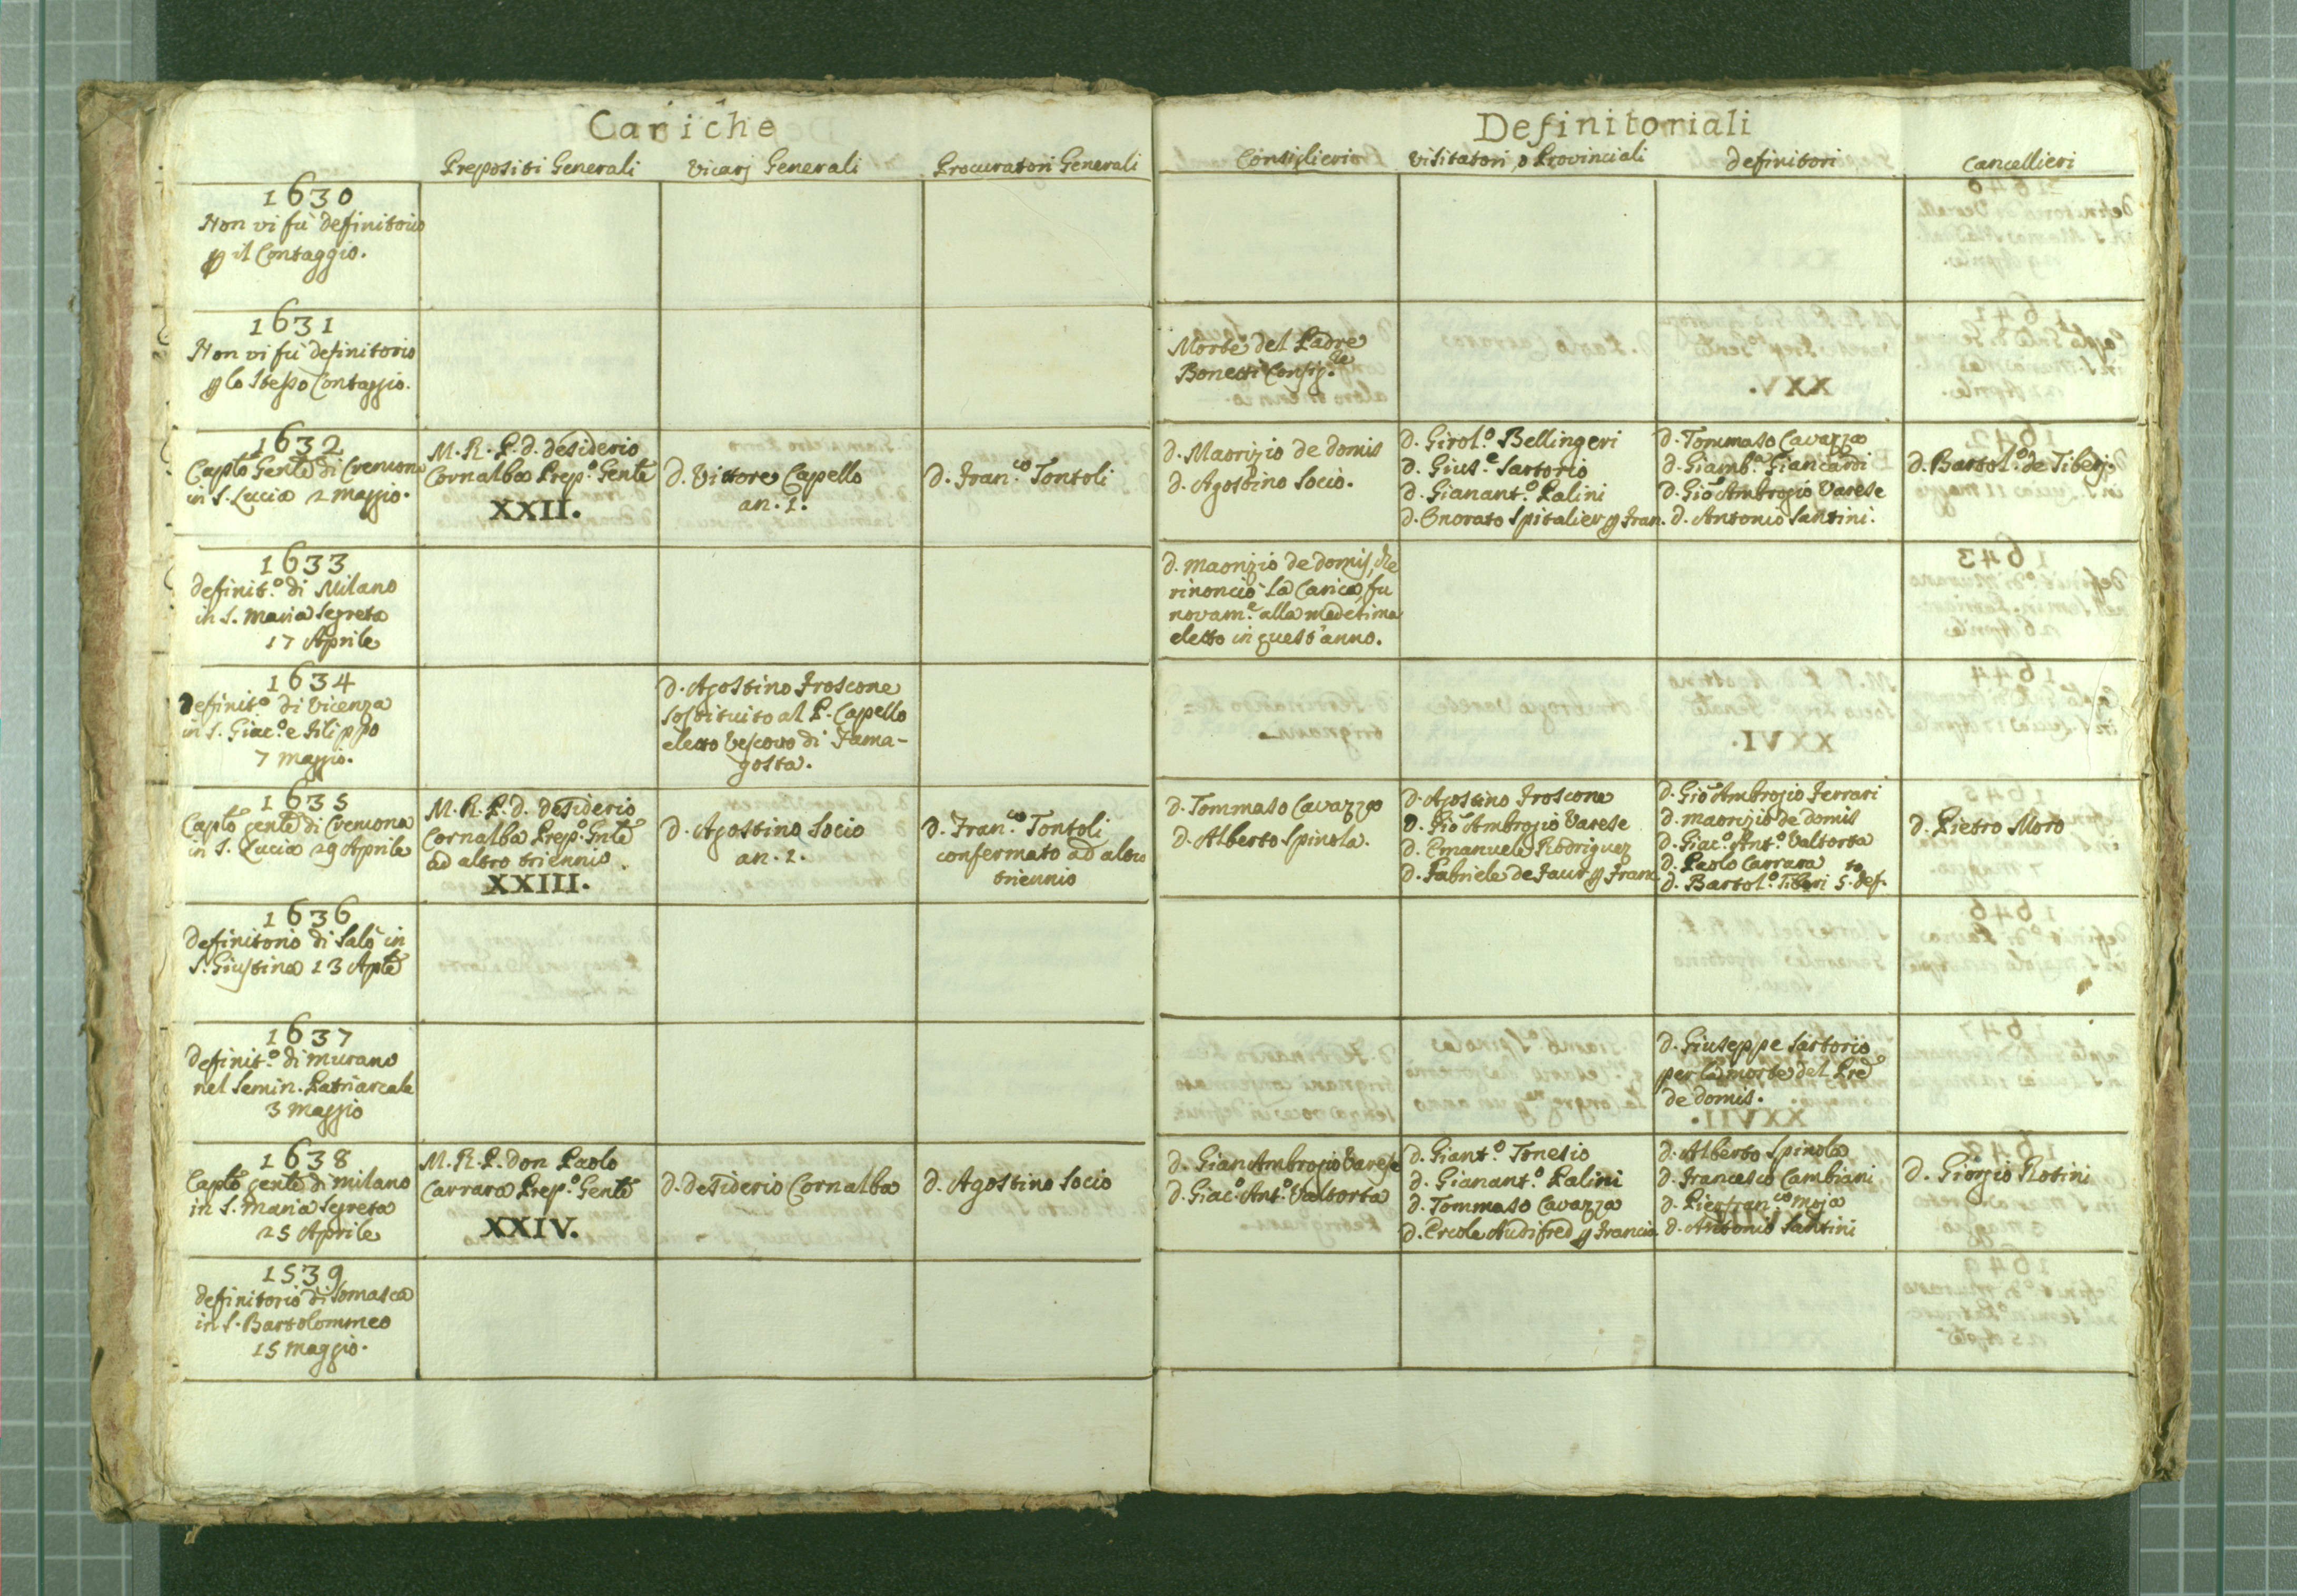 Cariche
Definitoriali
Prepositi Generali
Vicarj Generali
Procuratori Generali
Consiglieri
Visitatori, o Provinciali
definitori
Cancellieri
1630
Non vi fù definitorio
ꝑ il Contaggio.
1631
Non vi fù definitorio
ꝑ lo stesso Contaggio.
Morte del Padre
Bonetti Consig.re
1632
Capto Genle di Cremona
in S. Lucia 2 maggio.
M. R. P. d. desiderio
Cornalba Prep.o Genle
XXII.
d. Vittore Capello
an. 2.
d. Fran.co Tontoli
d. Maorizio de domis
d. Agostino Socio.
d. Girol.o Bellingeri
d. Gius.e Sartorio
d. Gianant.o Palini
d. Onorato Spitalier ꝑ Fran.
d. Tommaso Cavazza
d. Giamb.a Giancardi
d. Gio Ambrogio Varese
d. Antonio Santini.
d. Bartol.o de Tiberj.
1633
definit.o di Milano
in S. Maria Segreta
17 Aprile
d. Maorizio de domis, che
rinonciò la Carica, fu
novam.e alla medesima
eletto in quest'anno.
1634
definit.o di Vicenza
in S. Giac.o e Filippo
7 Maggio.
d. Agostino Froscone
sostituito al P. Capello
eletto Vescovo di Fama-
gosta.
1635
Capto Genle di Cremona
in S. Lucia 29 Aprile
M. R. P. d. desiderio
Cornalba Prep.o Gnle
ad altro triennio
XXIII.
d. Agostino Socio
an. 2.
d. Fran.co Tontoli
confermato ad altro
triennio
d. Tommaso Cavazza
d. Alberto Spinola.
d. Agostino Froscone
d. Gio Ambrogio Varese
d. Emanuele Rodriguez
d. Fabriele de Faur ꝑ Franc.
d. Gio Ambrogio Ferrari
d. maorizio de domis
d. Giac.o Ant.o Valtorta
d. Paolo Carrara
d. Bartol.o Tiberi 5.to def.
d. Pietro Moro
1636
definitorio di Salò in
S. Giustina 13 Aple
1637
definit.o di murano
nel Semin. Patriarcale
3 Maggio
d. Giuseppe Sartorio
per la morte del Pre
de domis.
1638
Capto Genle di Milano
in S. Maria Segreta
25 Aprile
M. R. P. don Paolo
Carrara Prep.o Genle
XXIV.
d. desiderio Cornalba
d. Agostino Socio
d. Gian Ambrogio Varese
d. Giac.o Ant.o Valtorta
d. Giant.o Tonesio
d. Gianant.o Palini
d. Tommaso Cavazza
d. Ercole Audifred ꝑ Francia.
d. Alberto Spinola
d. Francesco Cambiani
d. Pierfran.co Moja
d. Antonio Santini
d. Giorgio Rotini
1539
definitorio di Somasca
in S. Bartolommeo
15 Maggio.